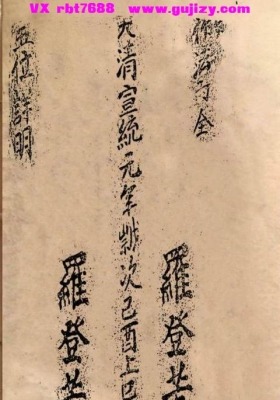 VX rbt7688 www.gujizy.com
大清宣統元年歲次己酉上巳
羅登
羅登
五位詳明